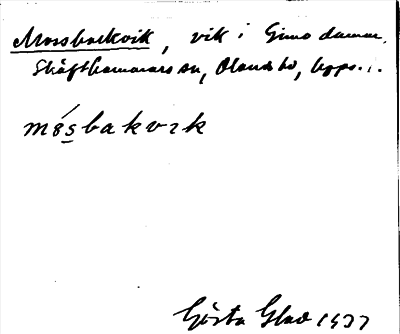 Mossbackvik, vik i Gimo damm.
Skäfthammars sn, Olands hd, Upps. l.
mósbakvık
Gösta Glad 1937